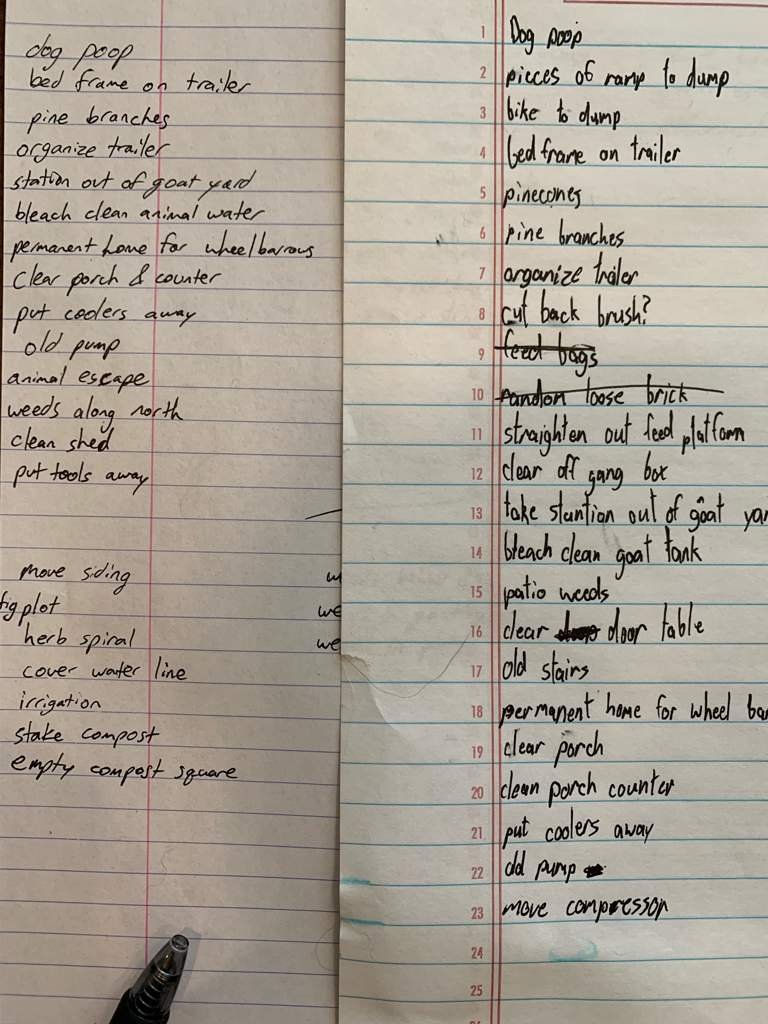 dog poop
bed frame on trailer
pine branches
organize trailer
station out of goat yard
bleach clean animal water
permanent home for wheelbarrows
clear porch & counter
put coolers away
old pump
animal escape
weeds along north
clean shed
put tools away
move siding w
fig plot we
herb spiral we
cover water line
irrigation
stake compost
empty compost square
1 Dog poop
2 pieces of ramp to dump
3 bike to dump
4 bed frame on trailer
5 pinecones
6 pine branches
7 organize trailer
8 cut back brush?
9 feed bags
10 random loose brick
11 straighten out feed platform
12 clear off gang box
13 take stantion out of goat yar
14 bleach clean goat tank
15 patio weeds
16 clear door table
17 old stairs
18 permanent home for wheel bar
19 clear porch
20 clean porch counter
21 put coolers away
22 old pump
23 move compressor
24
25